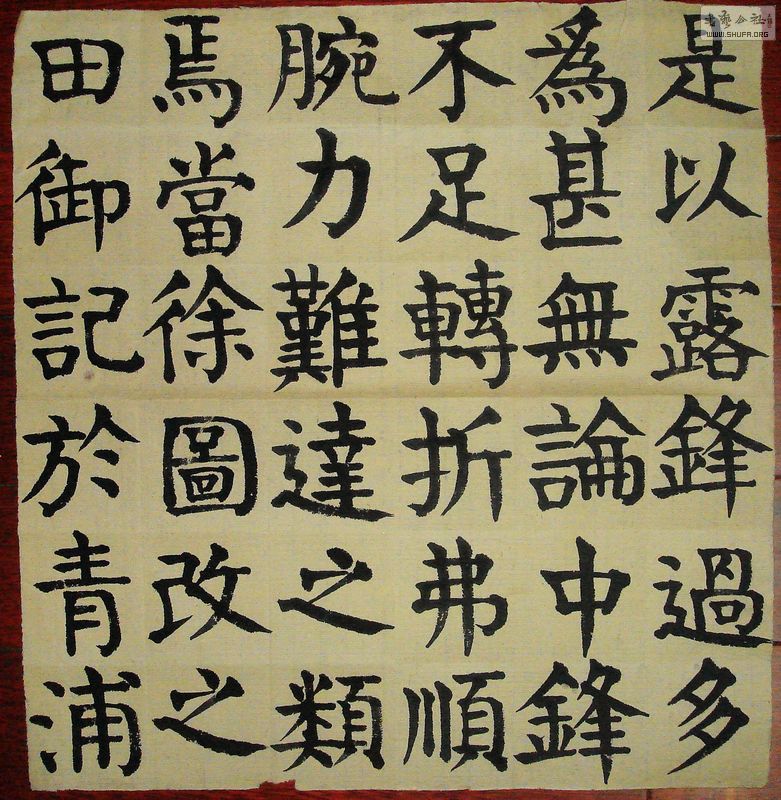 是以露鋒過多
為甚無論中鋒
不足轉折弗順
腕力難達之類
焉當徐圖改之
田御記於青浦
书艺公社
WWW.SHUFA.ORG